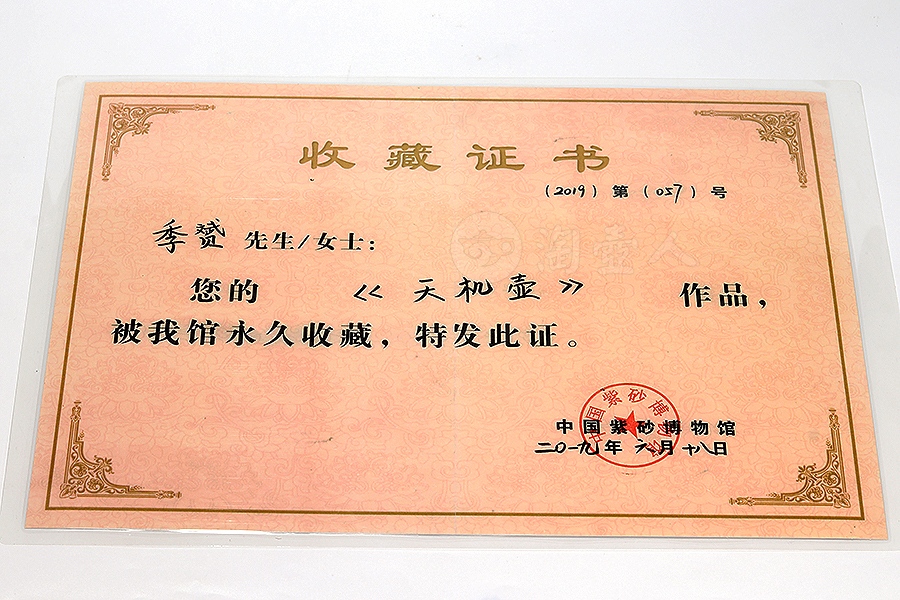 收藏证书
(2019) 第 (057) 号
季赟 先生/女士:
淘壶人
您的 《天机壶》 作品,
被我馆永久收藏,特发此证。
中国紫砂博物馆
中国紫砂博物馆
二〇一九年 六月 十八日